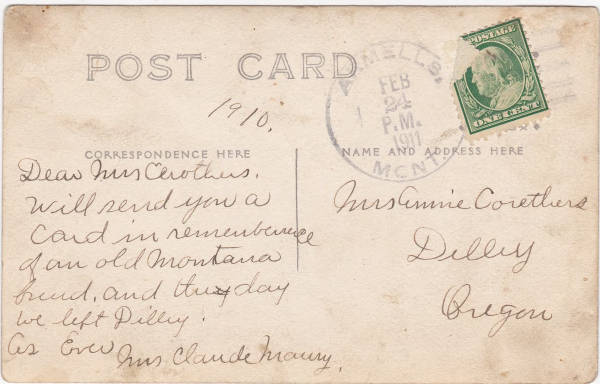 POST CARD
ARMELLS.
FEB
24
P.M.
1911
MONT.
POSTAGE
ONE CENT
1910.
CORRESPONDENCE HERE
NAME AND ADDRESS HERE
Dear Mrs Corothers.
Will send you a
Card in rememberence
of an old Montana
friend, and the day
we left Dilley.
As Ever
Mrs Claude Maury.
Mrs Annie Corethers
Dilley
Oregon